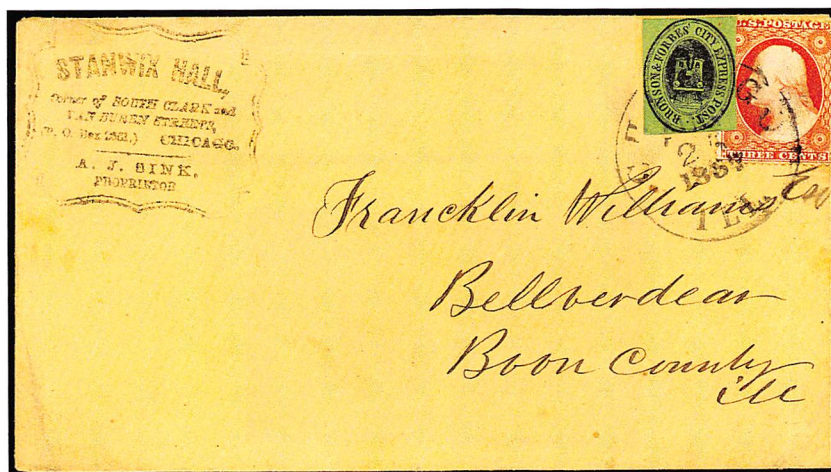 STANWIX HALL,
Corner of SOUTH CLARK and
VAN BUREN STREETS,
(P. O. Box 2621.) CHICAGO.
A. J. SINK,
PROPRIETOR
BRONSON & FORBES' CITY EXPRESS POST.
U.S. POSTAGE
THREE CENTS
ILL
Francklin Williams
Bellverdear
Boon County
Ill